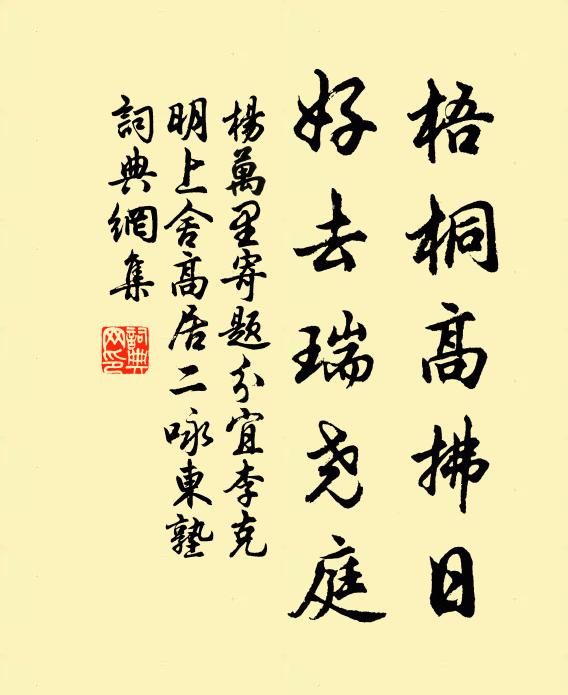 梧桐高拂日
好去瑞尧庭
楊萬里寄題分宜李克
明上舍高居二咏東塾
詞典網集
詞典網印